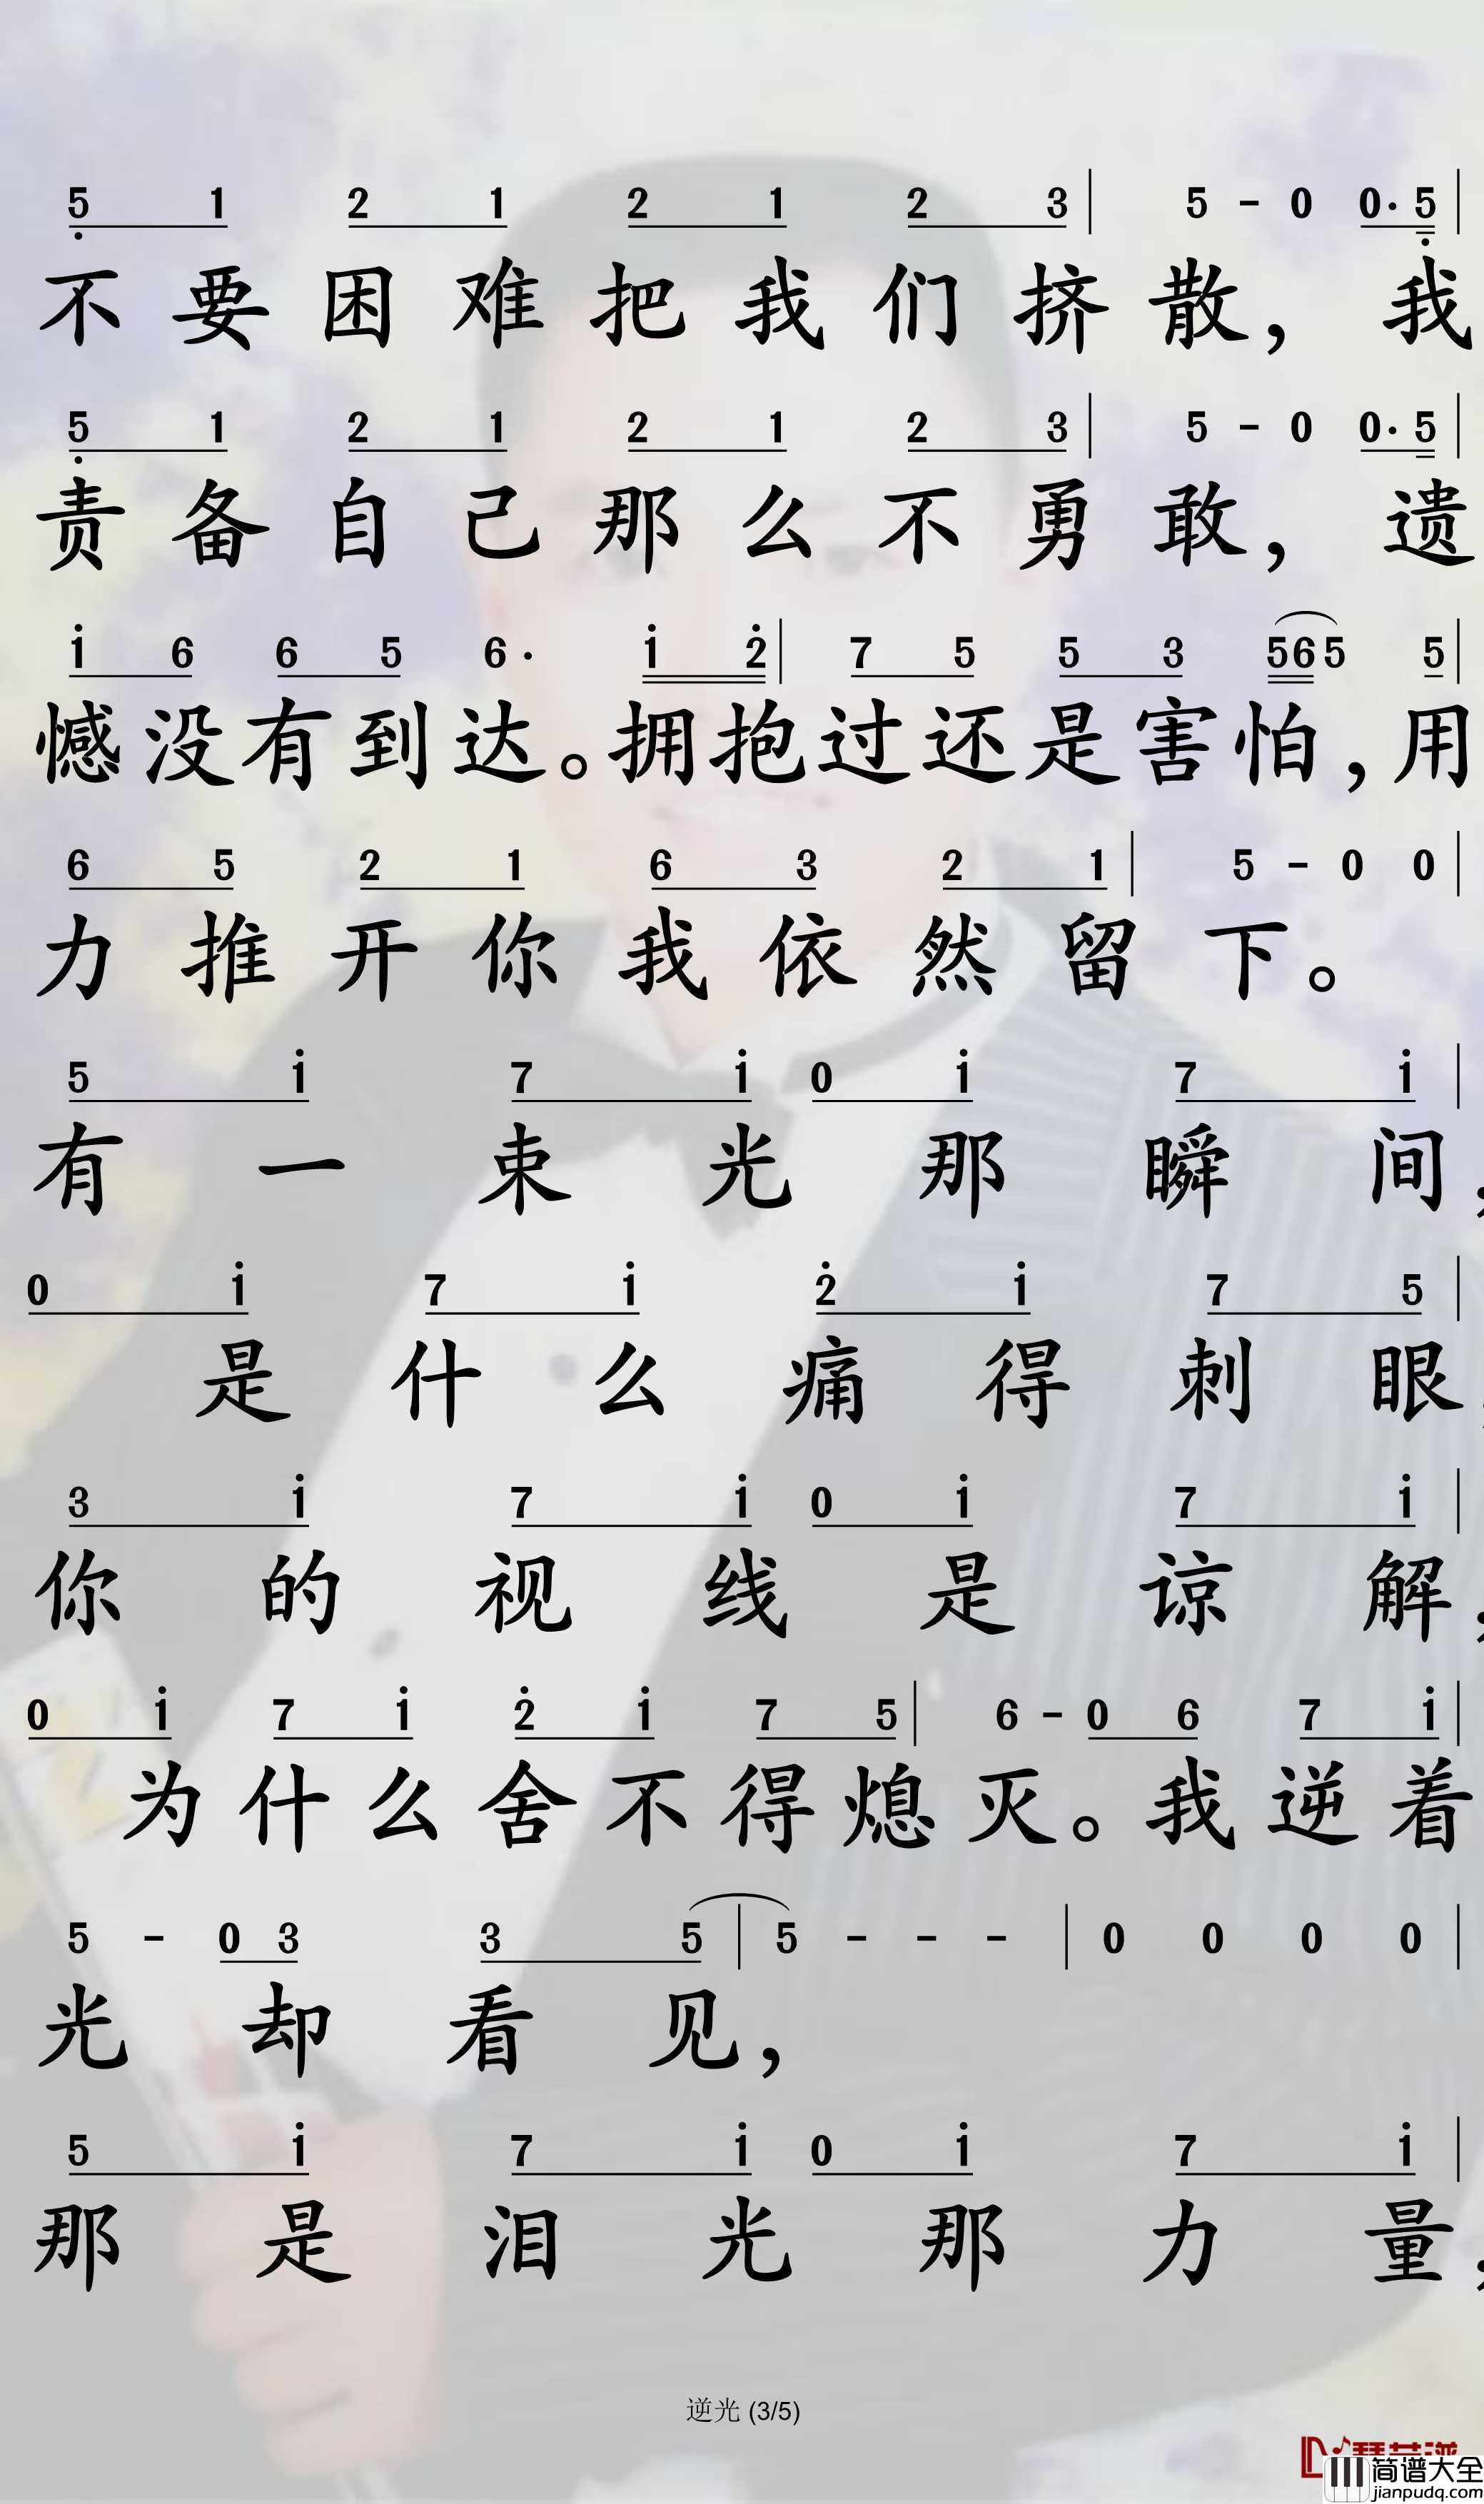 5 1 2 1 2 1 2 3 | 5 - 0 0· 5 |
不要困难把我们挤散，我
5 1 2 1 2 1 2 3 | 5 - 0 0· 5 |
责备自己那么不勇敢，遗
i 6 6 5 6· i 2 | 7 5 5 3 565 5 |
憾没有到达。拥抱过还是害怕，用
6 5 2 1 6 3 2 1 | 5 - 0 0 |
力推开你我依然留下。
5 i 7 i 0 i 7 i |
有一束光那瞬间，
0 i 7 i 2 i 7 5 |
是什么痛得刺眼，
3 i 7 i 0 i 7 i |
你的视线是谅解，
0 i 7 i 2 i 7 5 | 6 - 0 6 7 i |
为什么舍不得熄灭。我逆着
5 - 0 3 3 5 | 5 - - - | 0 0 0 0 |
光却看见，
5 i 7 i 0 i 7 i |
那是泪光那力量，
逆光 (3/5)
简谱大全
jianpudq.com